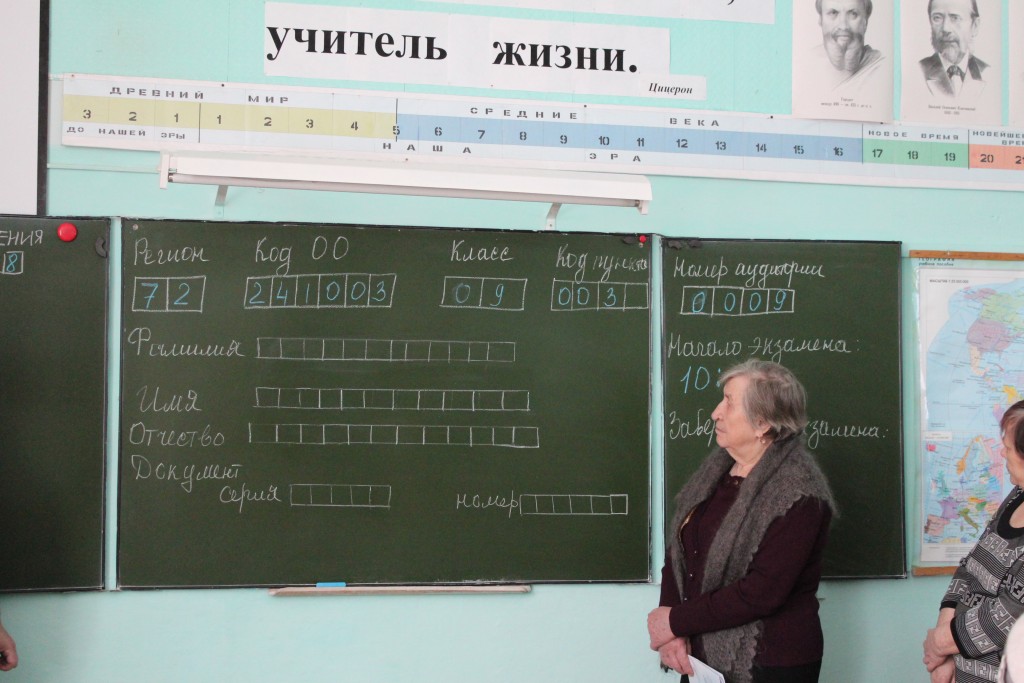 учитель жизни.
Цицерон
ДРЕВНИЙ МИР
СРЕДНИЕ ВЕКА
3 2 1 1 2 3 4 5 6 7 8 9 10 11 12 13 14 15 16 17 18 19 20
ДО НАШЕЙ ЭРЫ
НАША ЭРА
НОВОЕ ВРЕМЯ
НОВЕЙШЕ
ВРЕ
ЕНИЯ
8
Регион Код ОО Класс Код пункта
72 241003 09 003
Фамилия
Имя
Отчество
Документ
серия номер
Номер аудитории
0009
Начало экзамена:
10:
Завер замена: